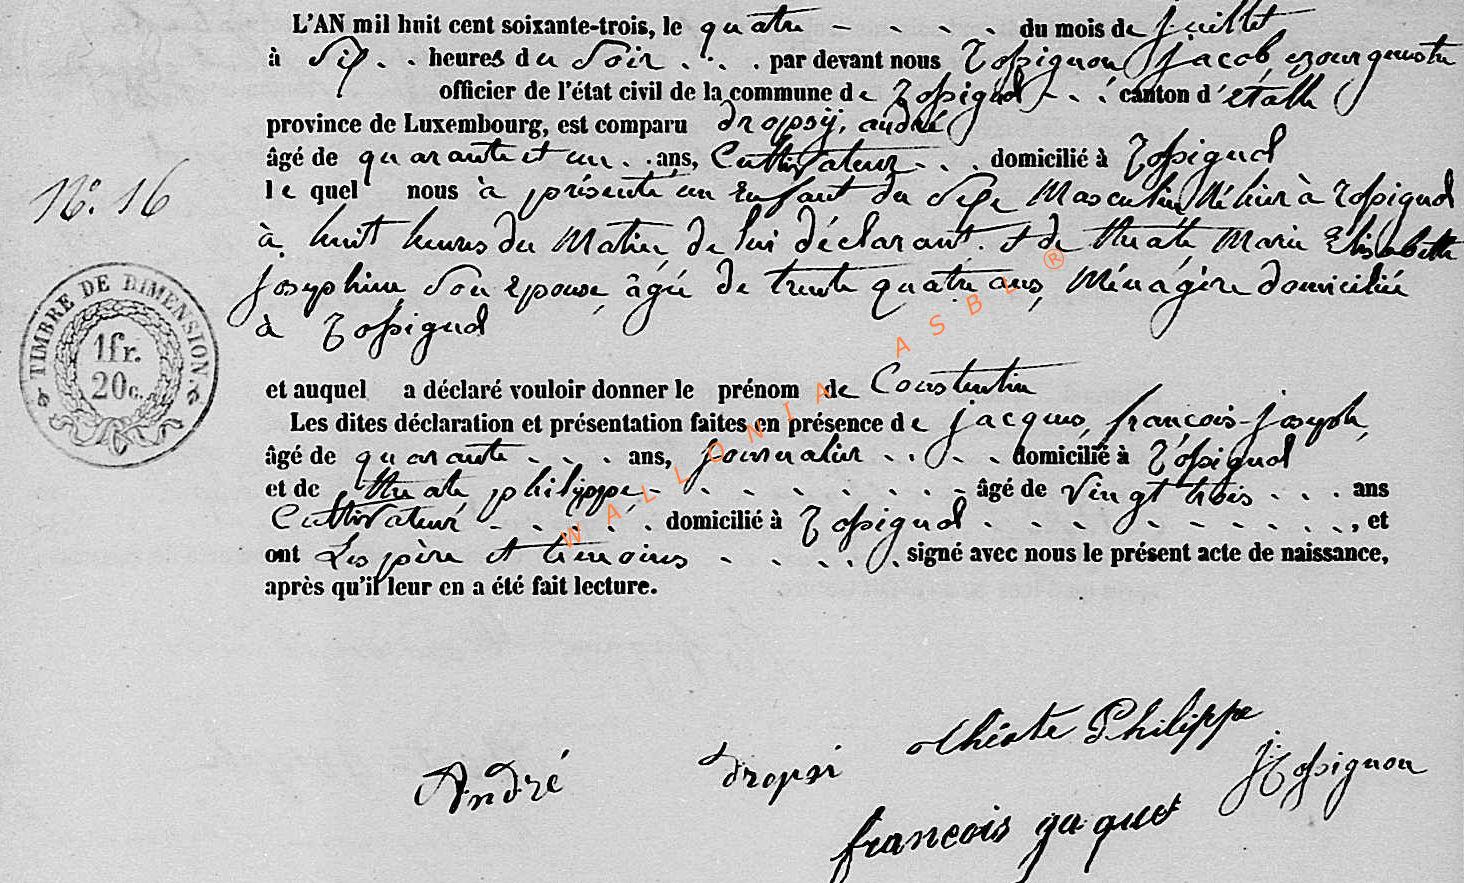 L'AN mil huit cent soixante-trois, le quatre - - - - du mois de juillet
à Six . . heures du Soir . . . par devant nous Rossignon, Jacob, bourgmestre
officier de l'état civil de la commune de Rossignol - - . canton d'étalle
province de Luxembourg, est comparu dropsy, andré
âgé de quarante et un . . ans, Cultivateur . . . domicilié à Rossignol
le quel nous à présenté un Enfant du Sexe Masculin, Né hier à Rossignol
à huit heures du Matin, de lui déclarant, et de thiate, Marie Elisabeth
Josephine, Son épouse, âgée de trente quatre ans, Ménagère domiciliée
à Rossignol
et auquel a déclaré vouloir donner le prénom de Constantin
Les dites déclaration et présentation faites en présence de jacques, françois-joseph,
âgé de quarante . . . ans, journalier . . . . domicilié à Rossignol
et de thiate philippe - - - - - - - - âgé de vingt trois . . . ans
Cultivateur - - - - . domicilié à Rossignol - - - - - - - - , et
ont Les père et témoins - - - - . signé avec nous le présent acte de naissance,
après qu'il leur en a été fait lecture.
N°. 16
TIMBRE DE DIMENSION.
1 fr.
20 c.
WALLONIA ASBL ®
thiate Philippe
André dropsi
J Rossignon
francois gaquet